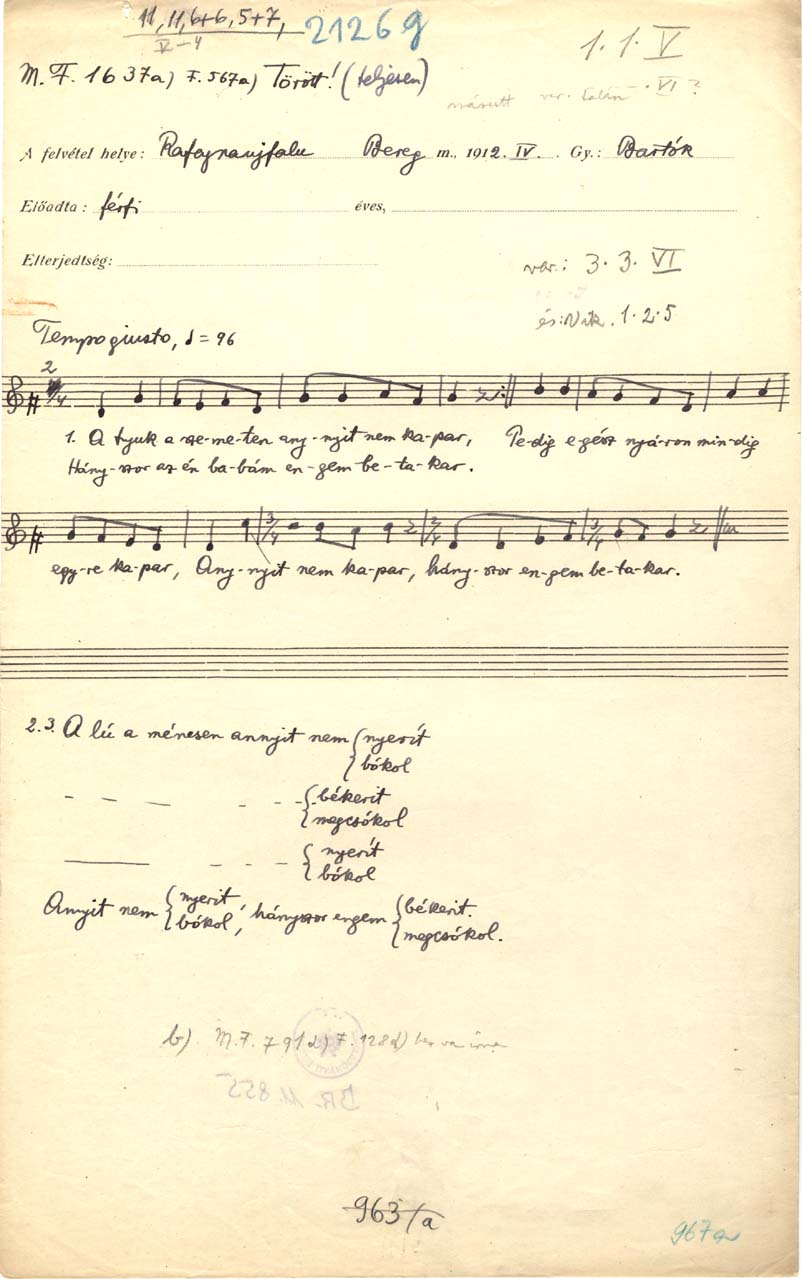 11, 11, 6+6, 5+7,
V-4
21269
1. 1. V
M. F. 1637a) F. 567a) Törött! (teljesen)
másutt var. talán VI?
A felvétel helye: Rafajnaujfalu Bereg m., 1912. IV. Gy.: Bartók
Előadta: férfi éves,
Elterjedtség:
var.: 3. 3. VI
és: 1. 2. 5
Tempo giusto, = 96
2/4
1. A tyuk a sze-me-ten any-nyit nem ka-par, Pe-dig egész nyá-ron min-dig
Hány-szor az én ba-bám en-gem be-ta-kar.
3/4 2/4 3/4
egy-re ka-par, Any-nyit nem ka-par, hány-szor en-gem be-ta-kar.
2.3. A lú a ménesen annyit nem { nyerít
{ bókol
{ békerit
{ megcsókol
{ nyerít
{ bókol
Annyit nem { nyerit, hányszor engem { békerit.
{ bókol { megcsókol.
b) M. F. 791d) F. 128d)
BR. 11.855
963/a
967a